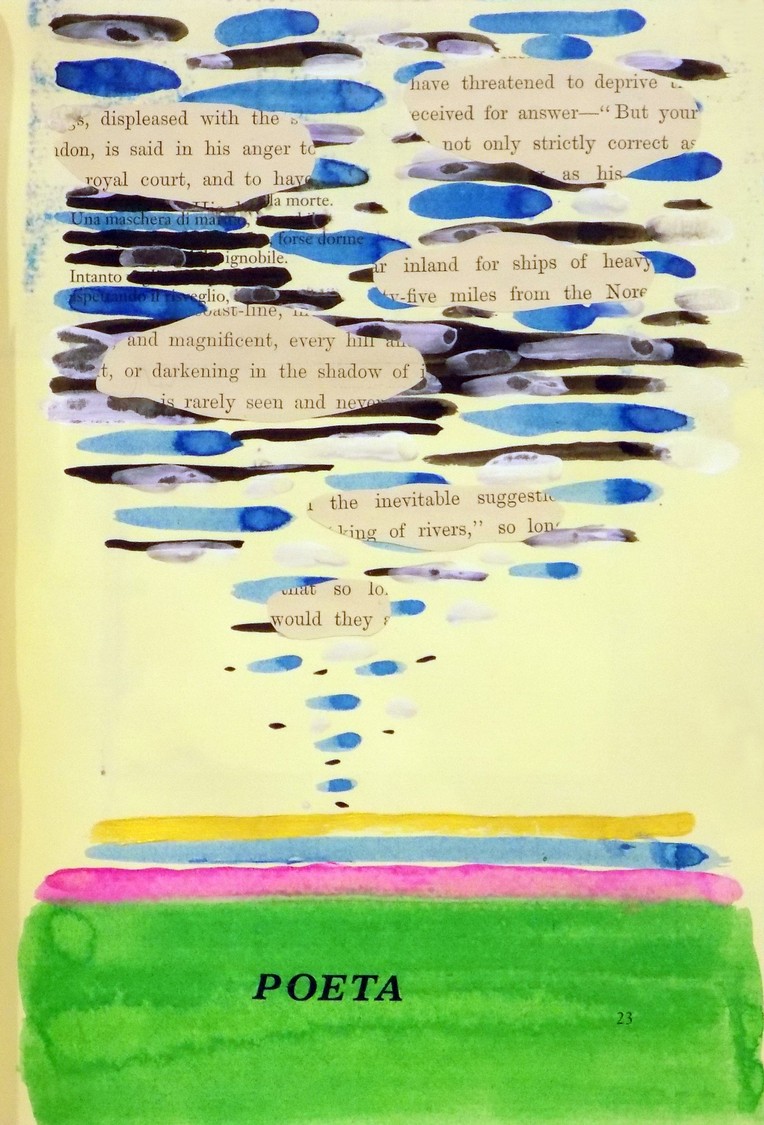 have threatened to deprive
eceived for answer—“But your
not only strictly correct as
as his
s, displeased with the
don, is said in his anger to
royal court, and to have
la morte.
Una maschera di
forse dorme
ignobile.
Intanto
aspettando il risveglio,
inland for ships of heavy
ty-five miles from the Nore
oast-line,
and magnificent, every hill an
t, or darkening in the shadow of
is rarely seen and never
the inevitable suggesti
king of rivers,” so long
that so lo
would they
POETA
23